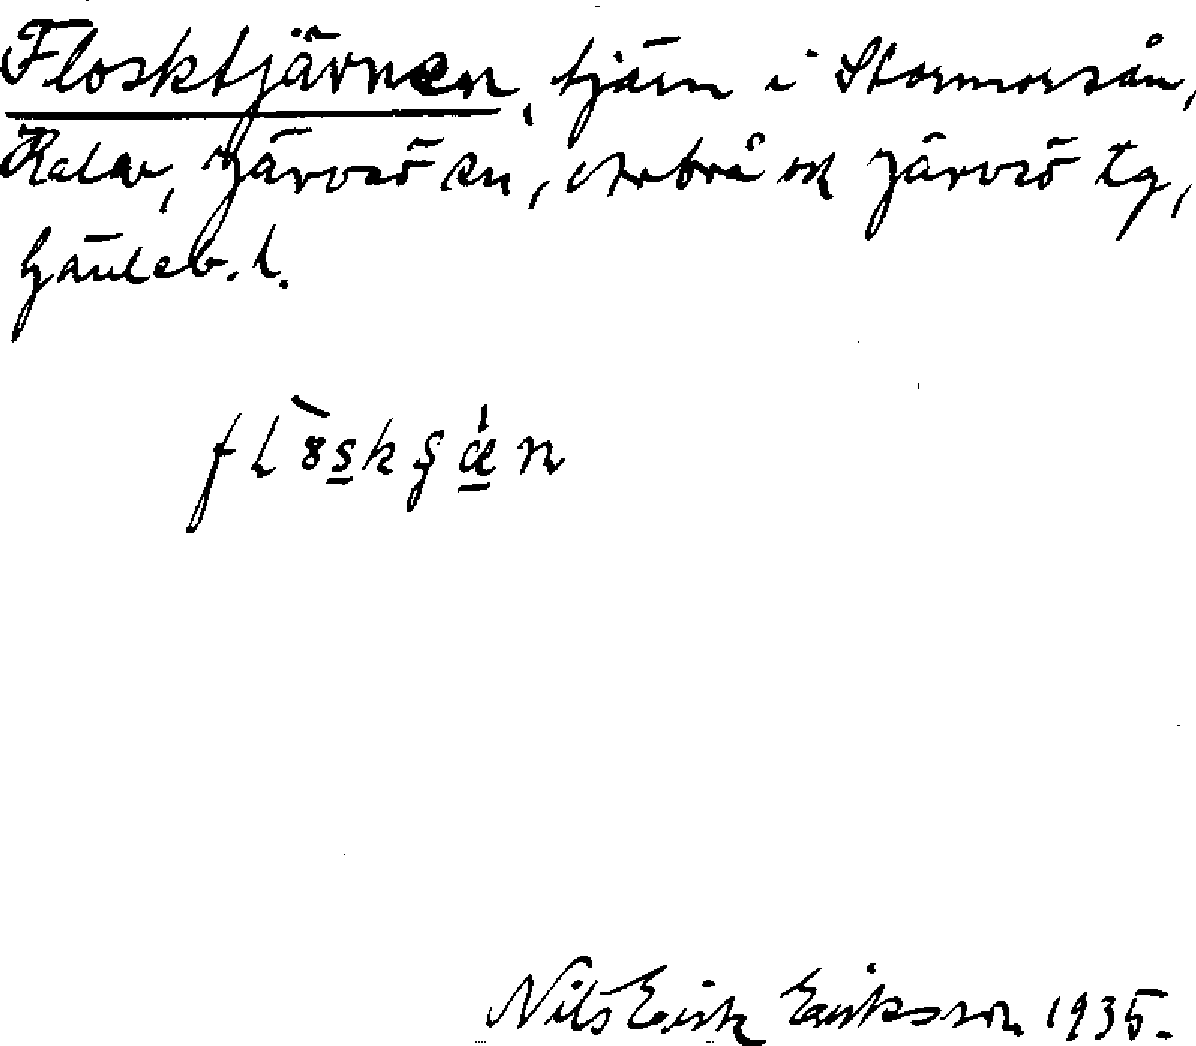 Flosktjärnen, tjärn i Stormorsån,
Kalv, Järvsö sn, Arbrå ok Järvsö tg,
Gävleb. l.
Nils Erik Eriksson 1935.